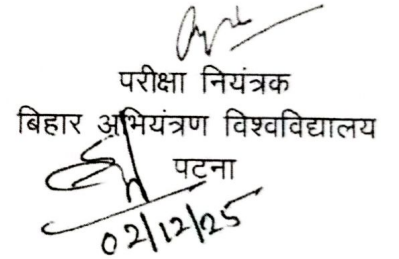 परीक्षा नियंत्रक
बिहार अभियंत्रण विश्वविद्यालय
पटना
02/12/25